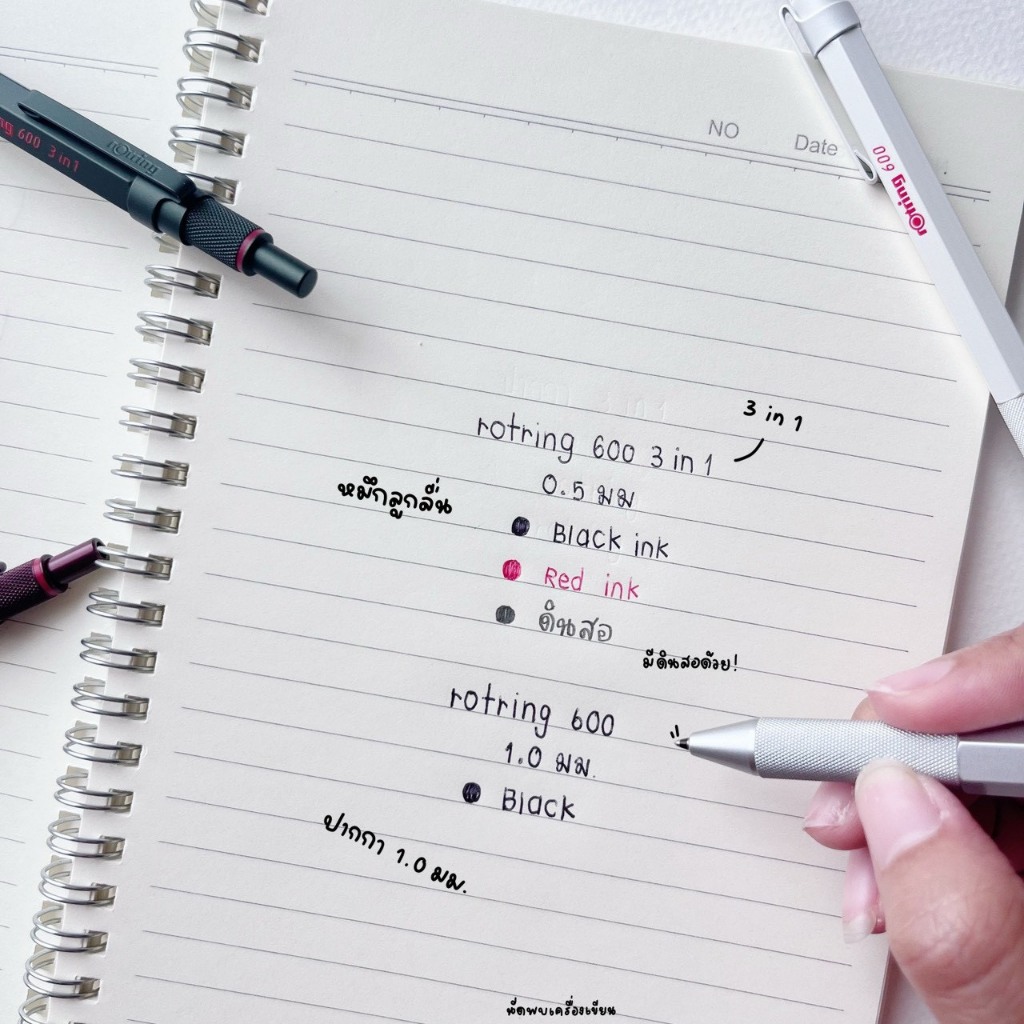 NO Date
rotring 600
rotring
ng 600 3 in 1
3 in 1
rotring 600 3 in 1
0.5 มม
หมึกลูกลื่น
Black ink
Red ink
ดินสอ
มีดินสอด้วย!
rotring 600
1.0 มม.
Black
ปากกา 1.0 มม.
นัดพบเครื่องเขียน